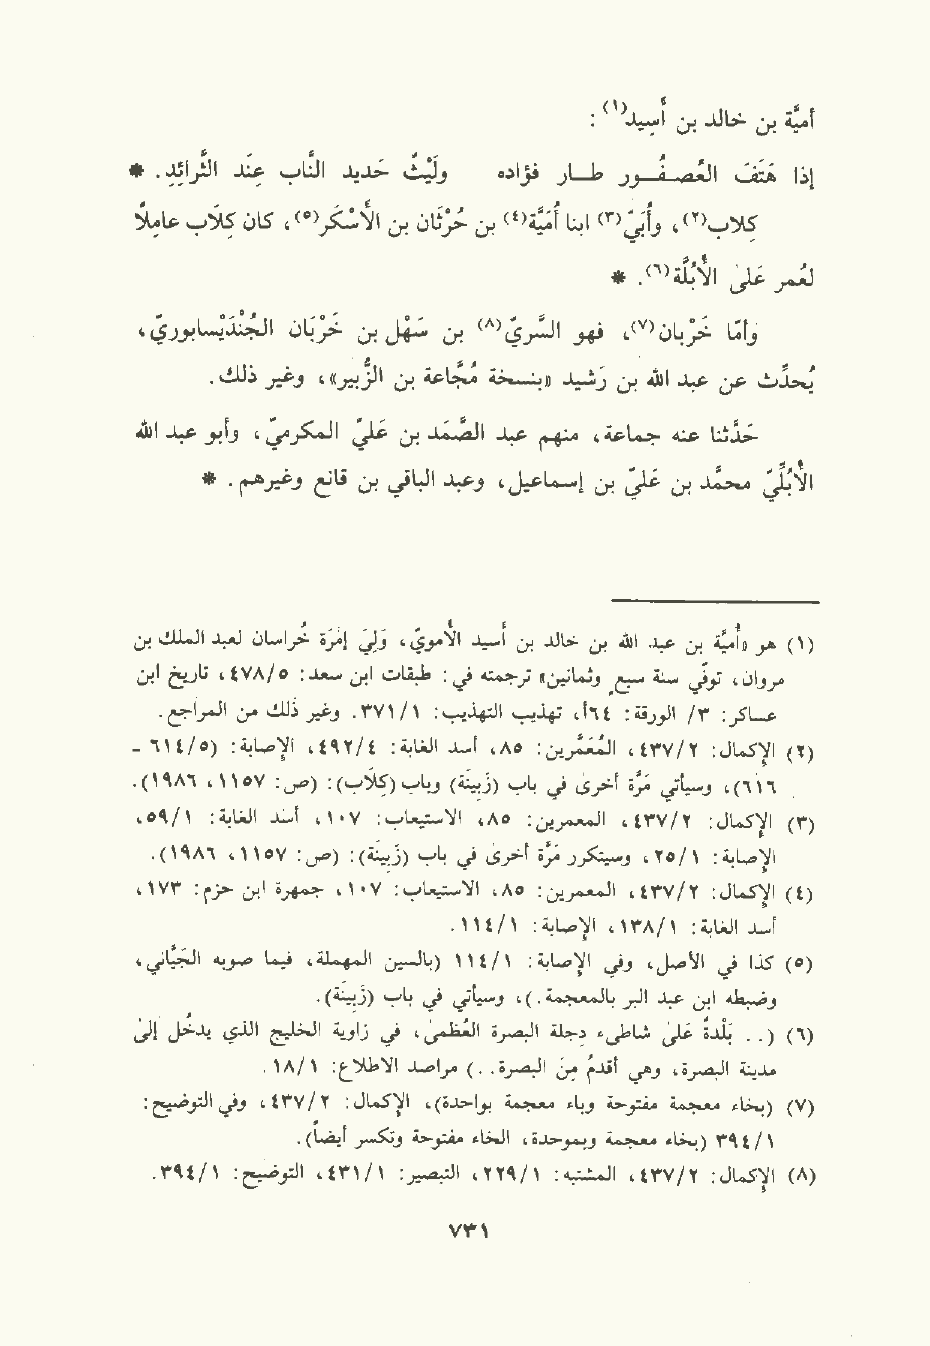 أميَّة بن خالد بن أَسِيد(١) :
إذا هَتَفَ العُصـفُـور طـار فؤاده وليْثٌ حَديد النَّاب عِنَد الثَّرائِد. *
كلاب(٢)، وأُبَيّ(٣) ابنا أُمَيَّة(٤) بن حُرْثَان بن الأَسْكَر(٥)، كان كِلاَب عاملاً
لعُمر عَلىٰ الأُبُلَّة(٦). *
وأمّا خَرْبان(٧)، فهو السَّريّ(٨) بن سَهْل بن خَرْبَان الجُنْدَيْسابوريّ،
يُحدِّث عن عبد الله بن رَشيد «بنسخة مُجَّاعة بن الزُبير»، وغير ذلك.
حَدّثنا عنه جماعة، منهم عبد الصَّمَد بن عَليّ المكرميّ، وأبو عبد الله
الأُبُلِّيّ محمَّد بن عَليّ بن إسماعيل، وعبد الباقي بن قانع وغيرهم. *
(١) هو «أميَّة بن عبد الله بن خالد بن أسيد الأمويّ، وَلِيَ إمْرَة خُراسان لعبد الملك بن
مروان، توفّي سنة سبع وثمانين» ترجمته في: طبقات ابن سعد: ٤٧٨/٥، تاريخ ابن
عساكر: ٣/ الورقة: ٦٤أ، تهذيب التهذيب: ٣٧١/١. وغير ذلك من المراجع.
(٢) الإكمال: ٤٣٧/٢، المُعَمَّرين: ٨٥، أسد الغابة: ٤٩٢/٤، الإصابة: (٦١٤/٥ -
٦١٦)، وسيأتي مَرَّة أخرى في باب (زَبِينَة) وباب (كِلاَب): (ص: ١١٥٧، ١٩٨٦).
(٣) الإكمال: ٤٣٧/٢، المعمرين: ٨٥، الاستيعاب: ١٠٧، أسد الغابة: ٥٩/١،
الإصابة: ٢٥/١، وسيتكرر مَرّة أخرى في باب (زَبِينَة): (ص: ١١٥٧، ١٩٨٦).
(٤) الإكمال: ٤٣٧/٢، المعمرين: ٨٥، الاستيعاب: ١٠٧، جمهرة ابن حزم: ١٧٣،
أسد الغابة: ١٣٨/١، الإصابة: ١١٤/١.
(٥) كذا في الأصل، وفي الإصابة: ١١٤/١ (بالسين المهملة، فيما صوبه الجَيَّاني،
وضبطه ابن عبد البر بالمعجمة.)، وسيأتي في باب (زَبِينَة).
(٦) (.. بَلْدةٌ عَلىٰ شاطىء دجلة البصرة العُظمىٰ، في زاوية الخليج الذي يدخُل إلىٰ
مدينة البصرة، وهي أقدَم مِن البصرة..) مراصد الاطلاع: ١٨/١.
(٧) (بخاء معجمة مفتوحة وباء معجمة بواحدة)، الإكمال: ٤٣٧/٢، وفي التوضيح:
٣٩٤/١ (بخاء معجمة وبموحدة، الخاء مفتوحة وتكسر أيضاً).
(٨) الإكمال: ٤٣٧/٢، المشتبه: ٢٢٩/١، التبصير: ٤٣١/١، التوضيح: ٣٩٤/١.
٧٣١